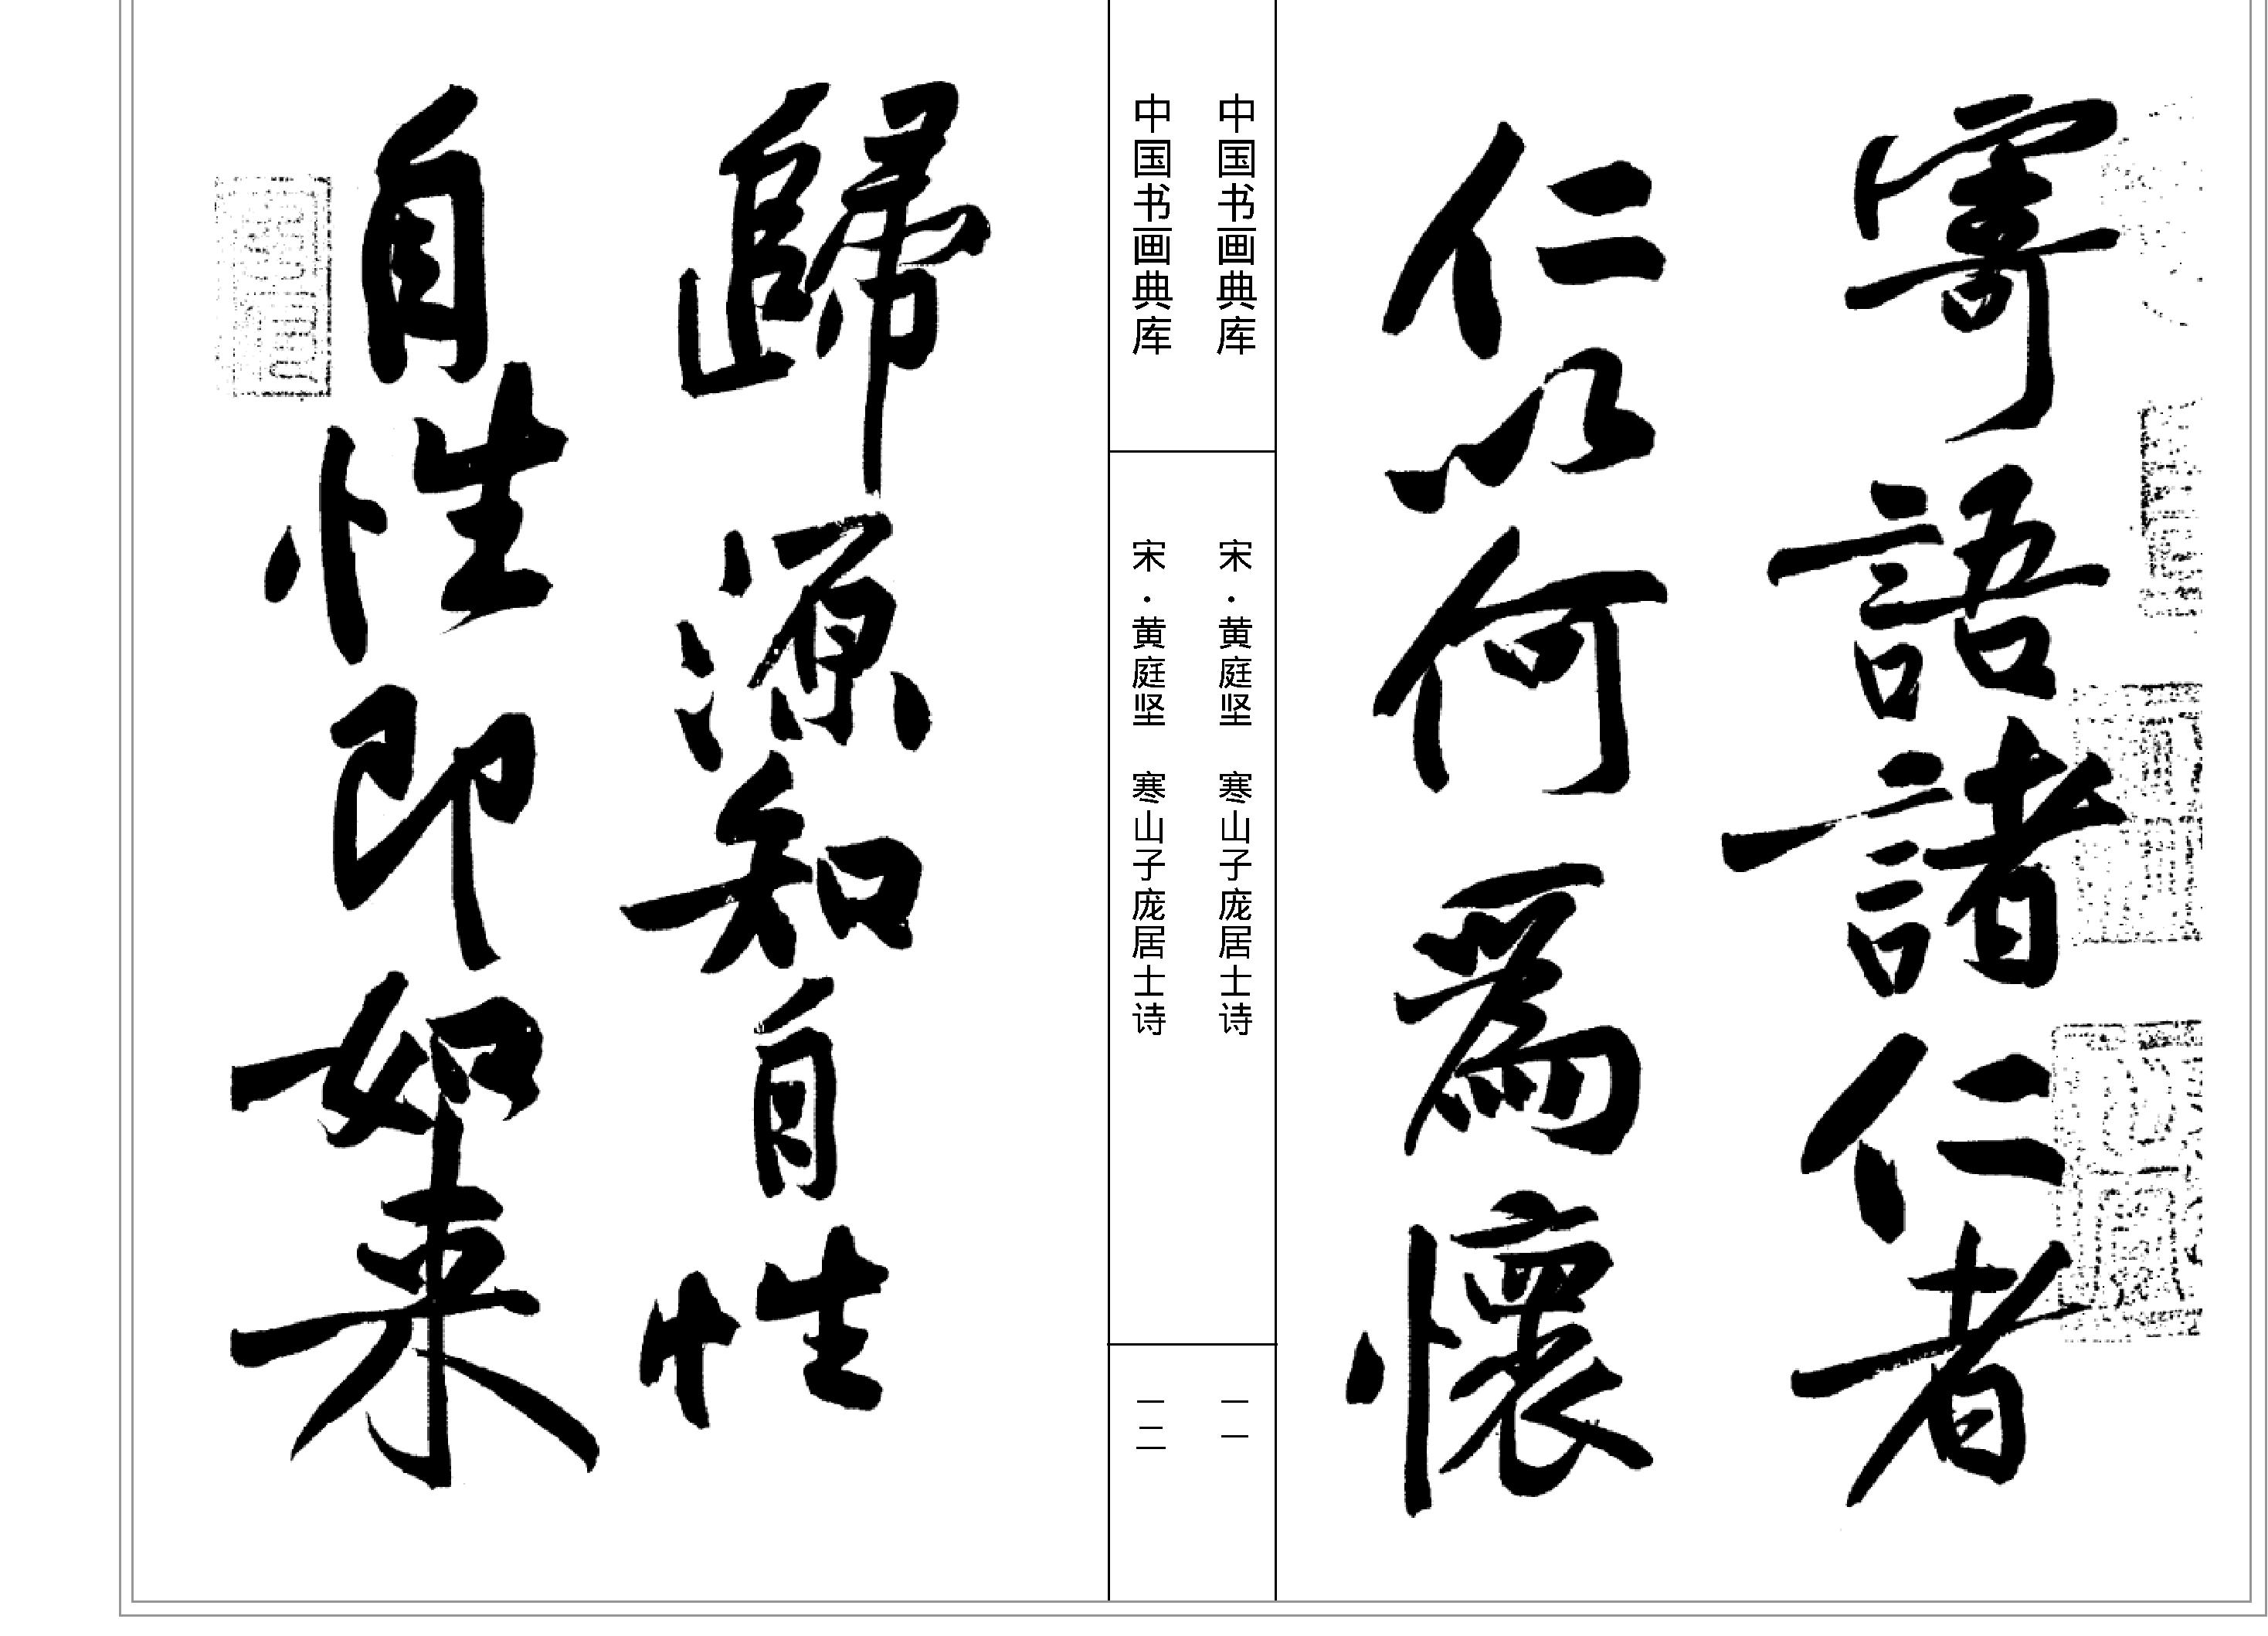 寄語諸仁者
仁以何爲懷
中国书画典库
宋·黄庭坚　寒山子庞居士诗
一一
中国书画典库
宋·黄庭坚　寒山子庞居士诗
一二
歸源知自性
自性即如来